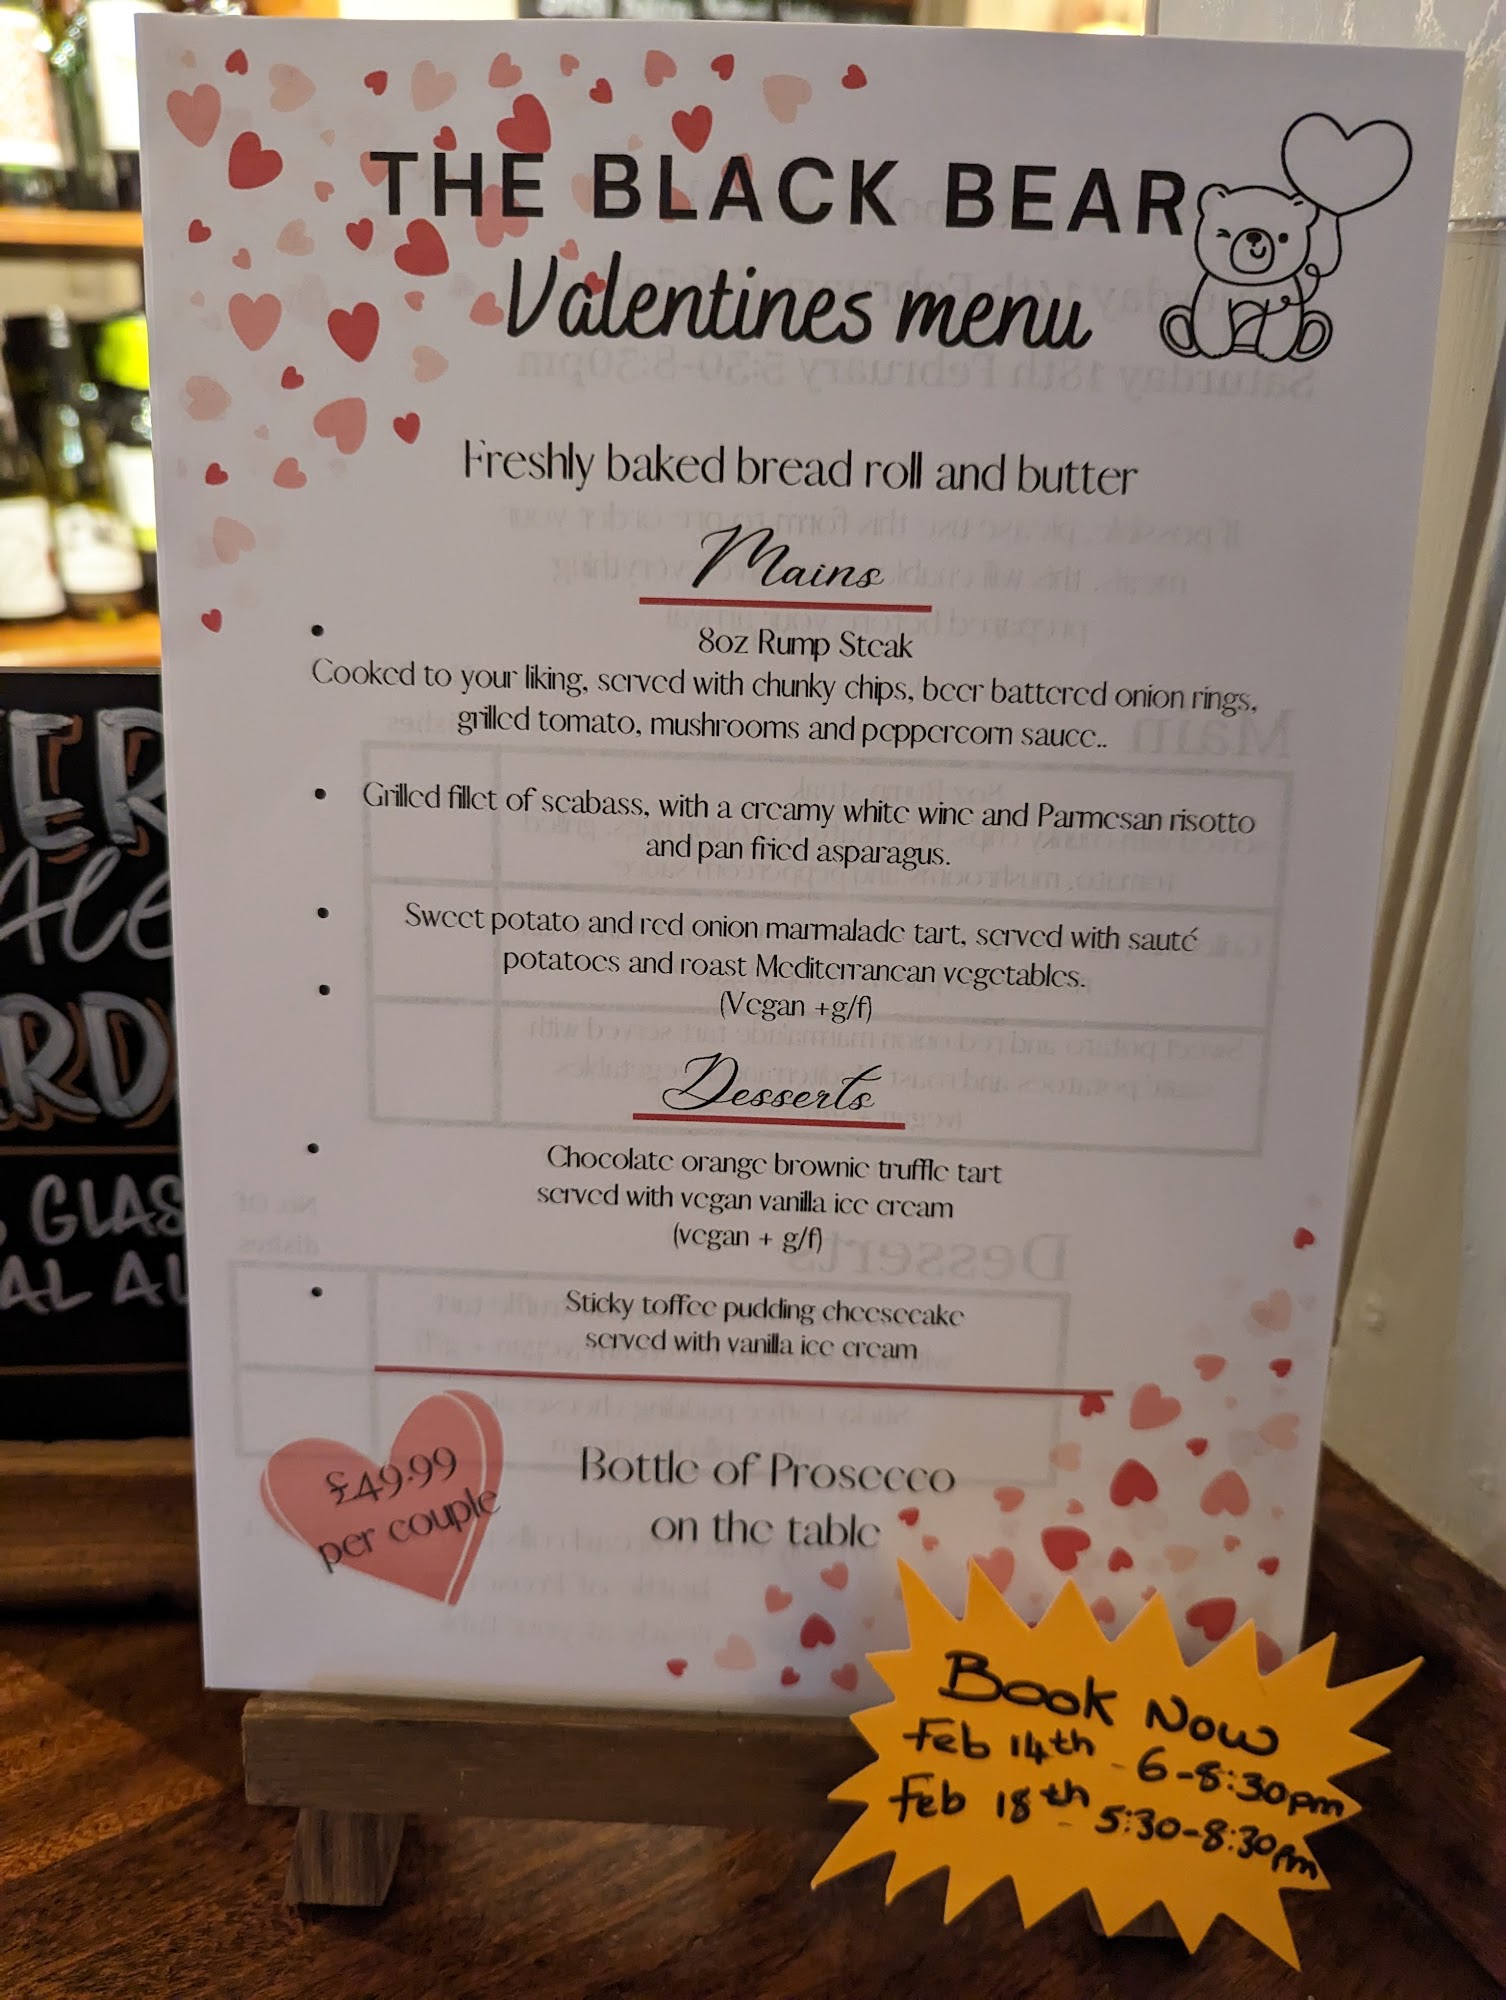 THE BLACK BEAR
Valentines menu
Freshly baked bread roll and butter
Mains
8oz Rump Steak
Cooked to your liking, served with chunky chips, beer battered onion rings,
grilled tomato, mushrooms and peppercorn sauce..
Grilled fillet of seabass, with a creamy white wine and Parmesan risotto
and pan fried asparagus.
Sweet potato and red onion marmalade tart, served with sauté
potatoes and roast Mediterranean vegetables.
(Vegan +g/f)
Desserts
Chocolate orange brownie truffle tart
served with vegan vanilla ice cream
(vegan + g/f)
Sticky toffee pudding cheesecake
served with vanilla ice cream
£49.99
per couple
Bottle of Prosecco
on the table
Book Now
Feb 14th - 6-8:30pm
Feb 18th - 5:30-8:30pm